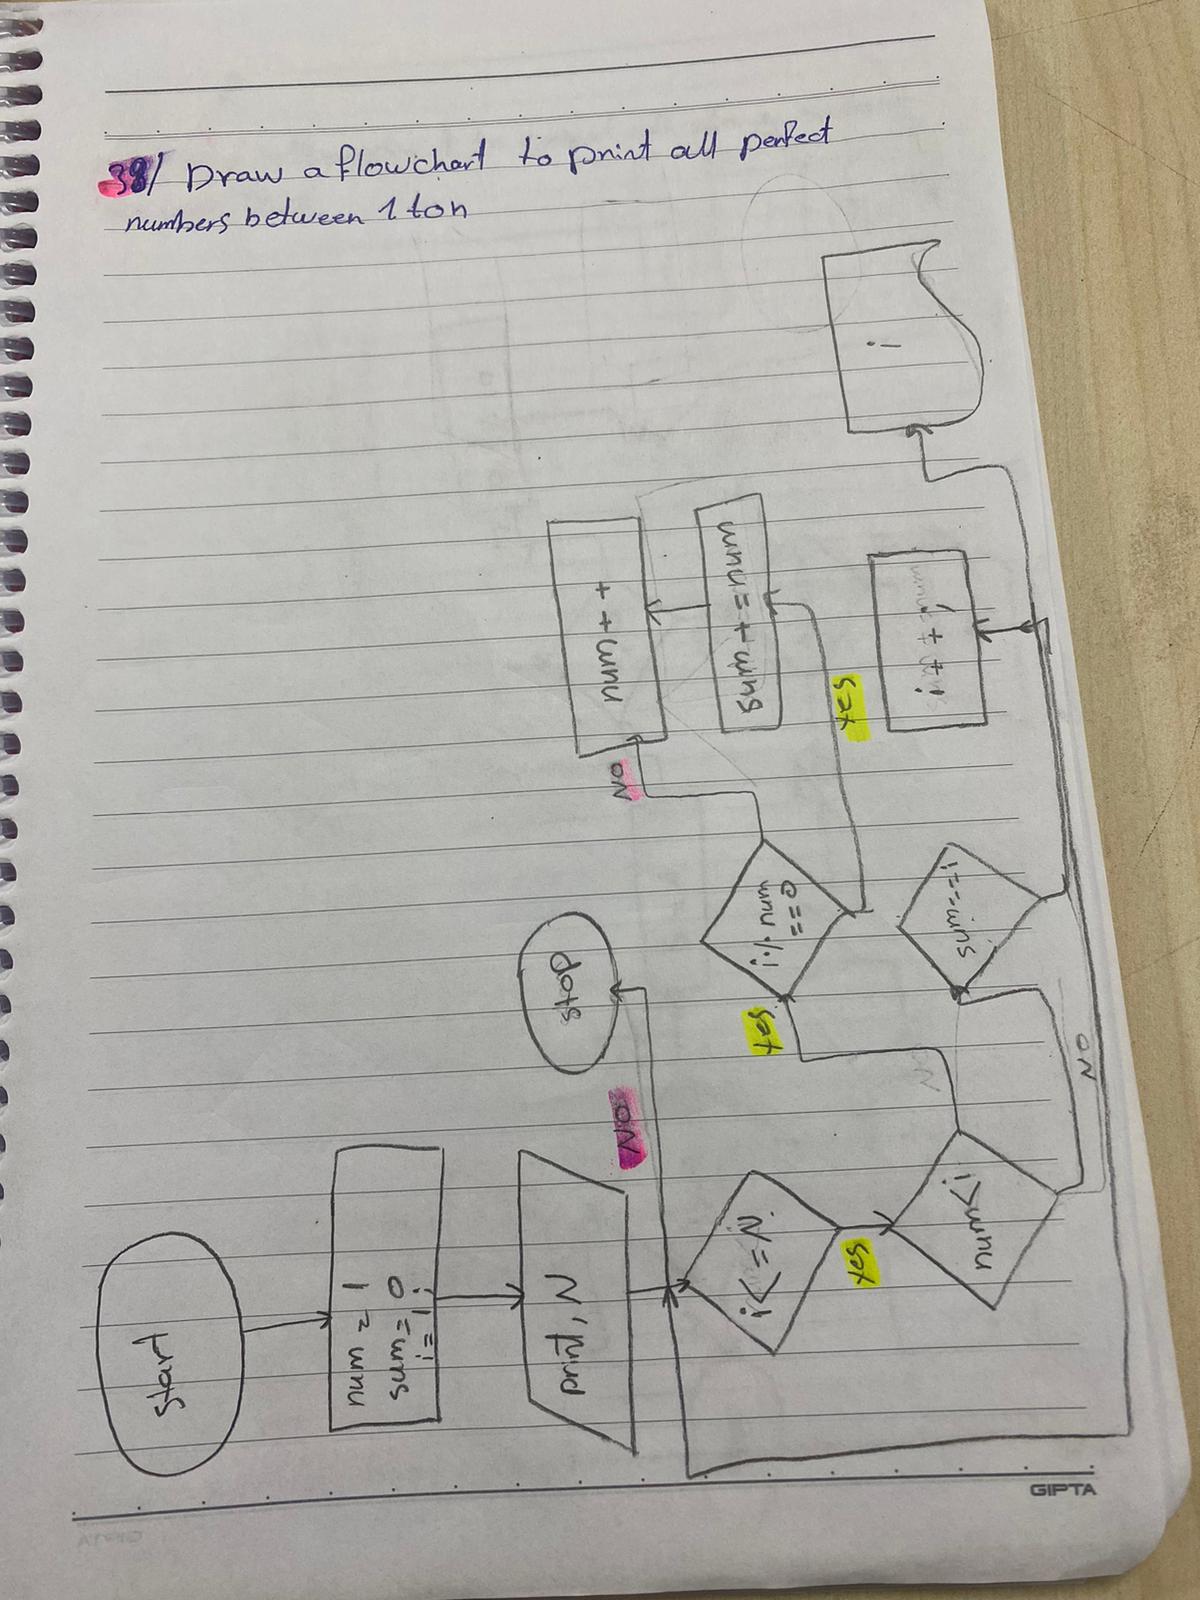 38/ Draw a flowchart to print all perfect
numbers between 1 to n
start
num = 1
sum = 0
i = 1;
print, N
i<=N.
NO
stop
Yes
num<i
Yes
i % num
==0
NO
Yes
sum+=num
num++
sum==i
NO
i++;
i
GIPTA